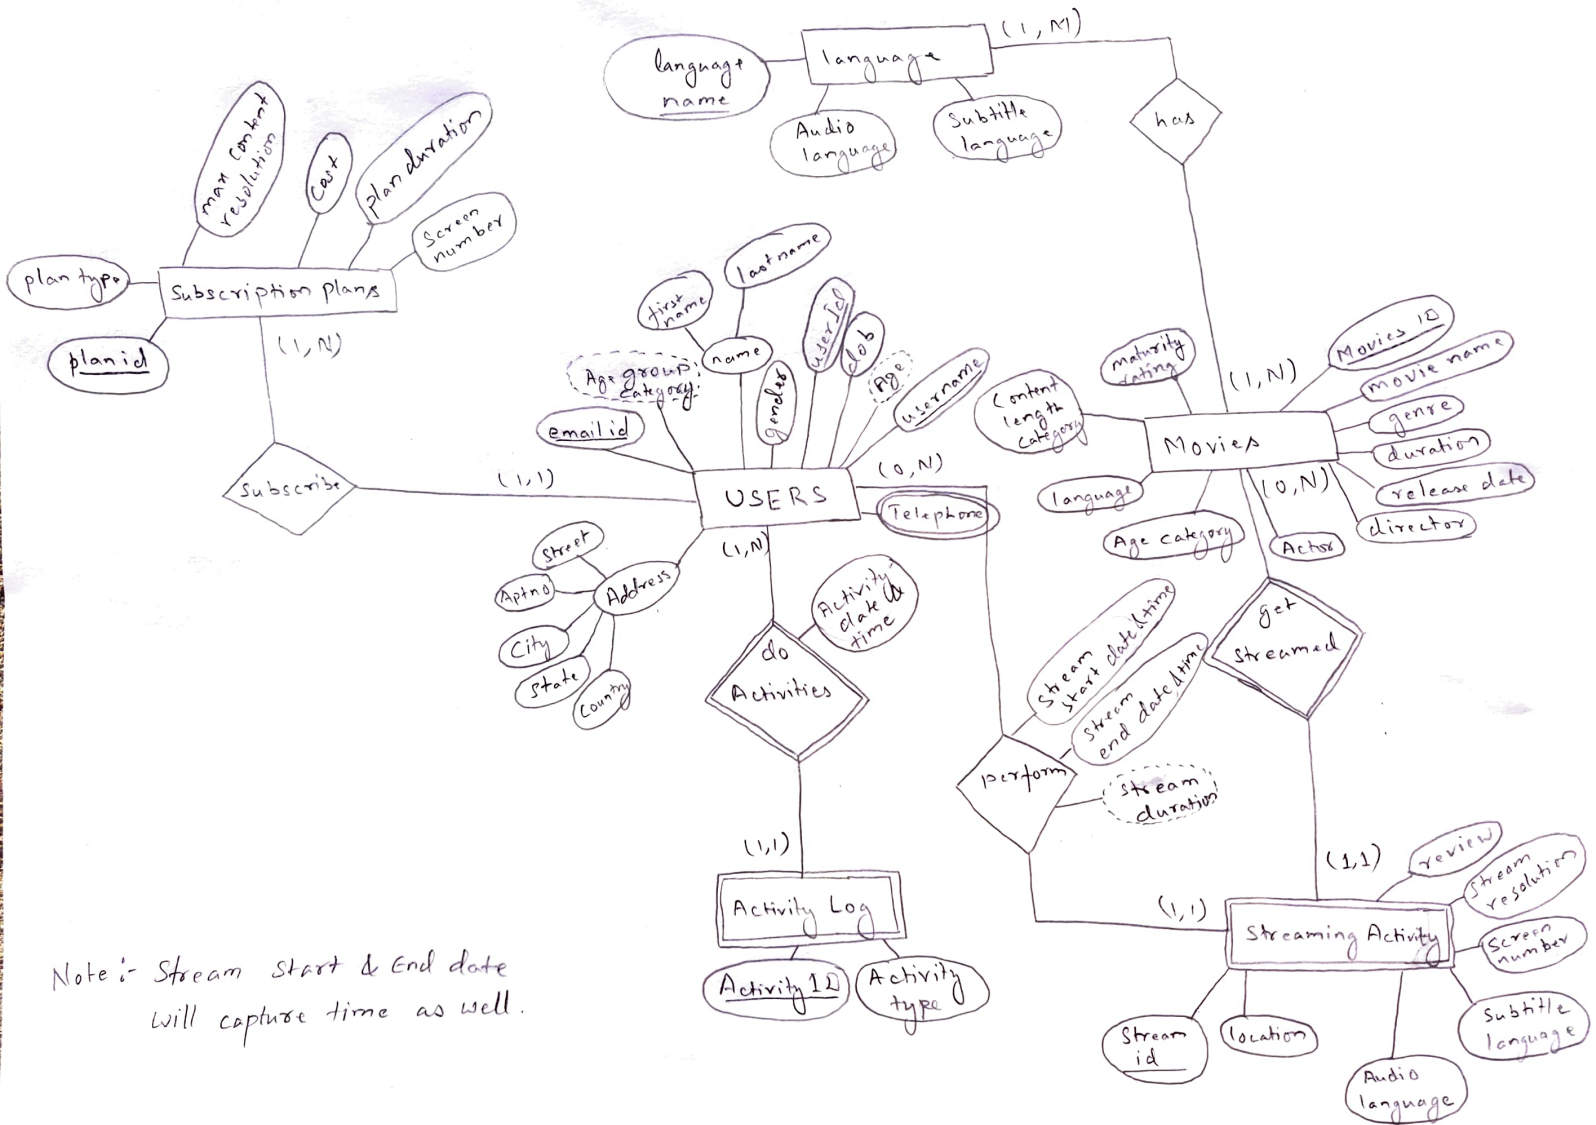 language
name
language
(1, M)
Audio
language
Subtitle
language
has
max content
resolution
cost
plan duration
Screen
number
plan type
Subscription plans
plan id
(1, N)
Subscribe
(1,1)
first
name
lastname
name
Age group
category
email id
gender
userId
dob
Age
username
USERS
(0, N)
Telephone
(1, N)
Street
Aptno
Address
City
State
Country
Activity
date &
time
do
Activities
(1,1)
Activity Log
Activity ID
Activity
type
maturity
rating
Content
length
category
(1, N)
Movies ID
movie name
genre
duration
release date
director
Movies
language
Age category
(0, N)
Actor
get
streamed
Stream
start date & time
Stream
end date & time
perform
stream
duration
(1,1)
(1,1)
review
Stream
resolution
Streaming Activity
Screen
number
Stream
id
location
Audio
language
Subtitle
language
Note :- Stream Start & End date
will capture time as well.